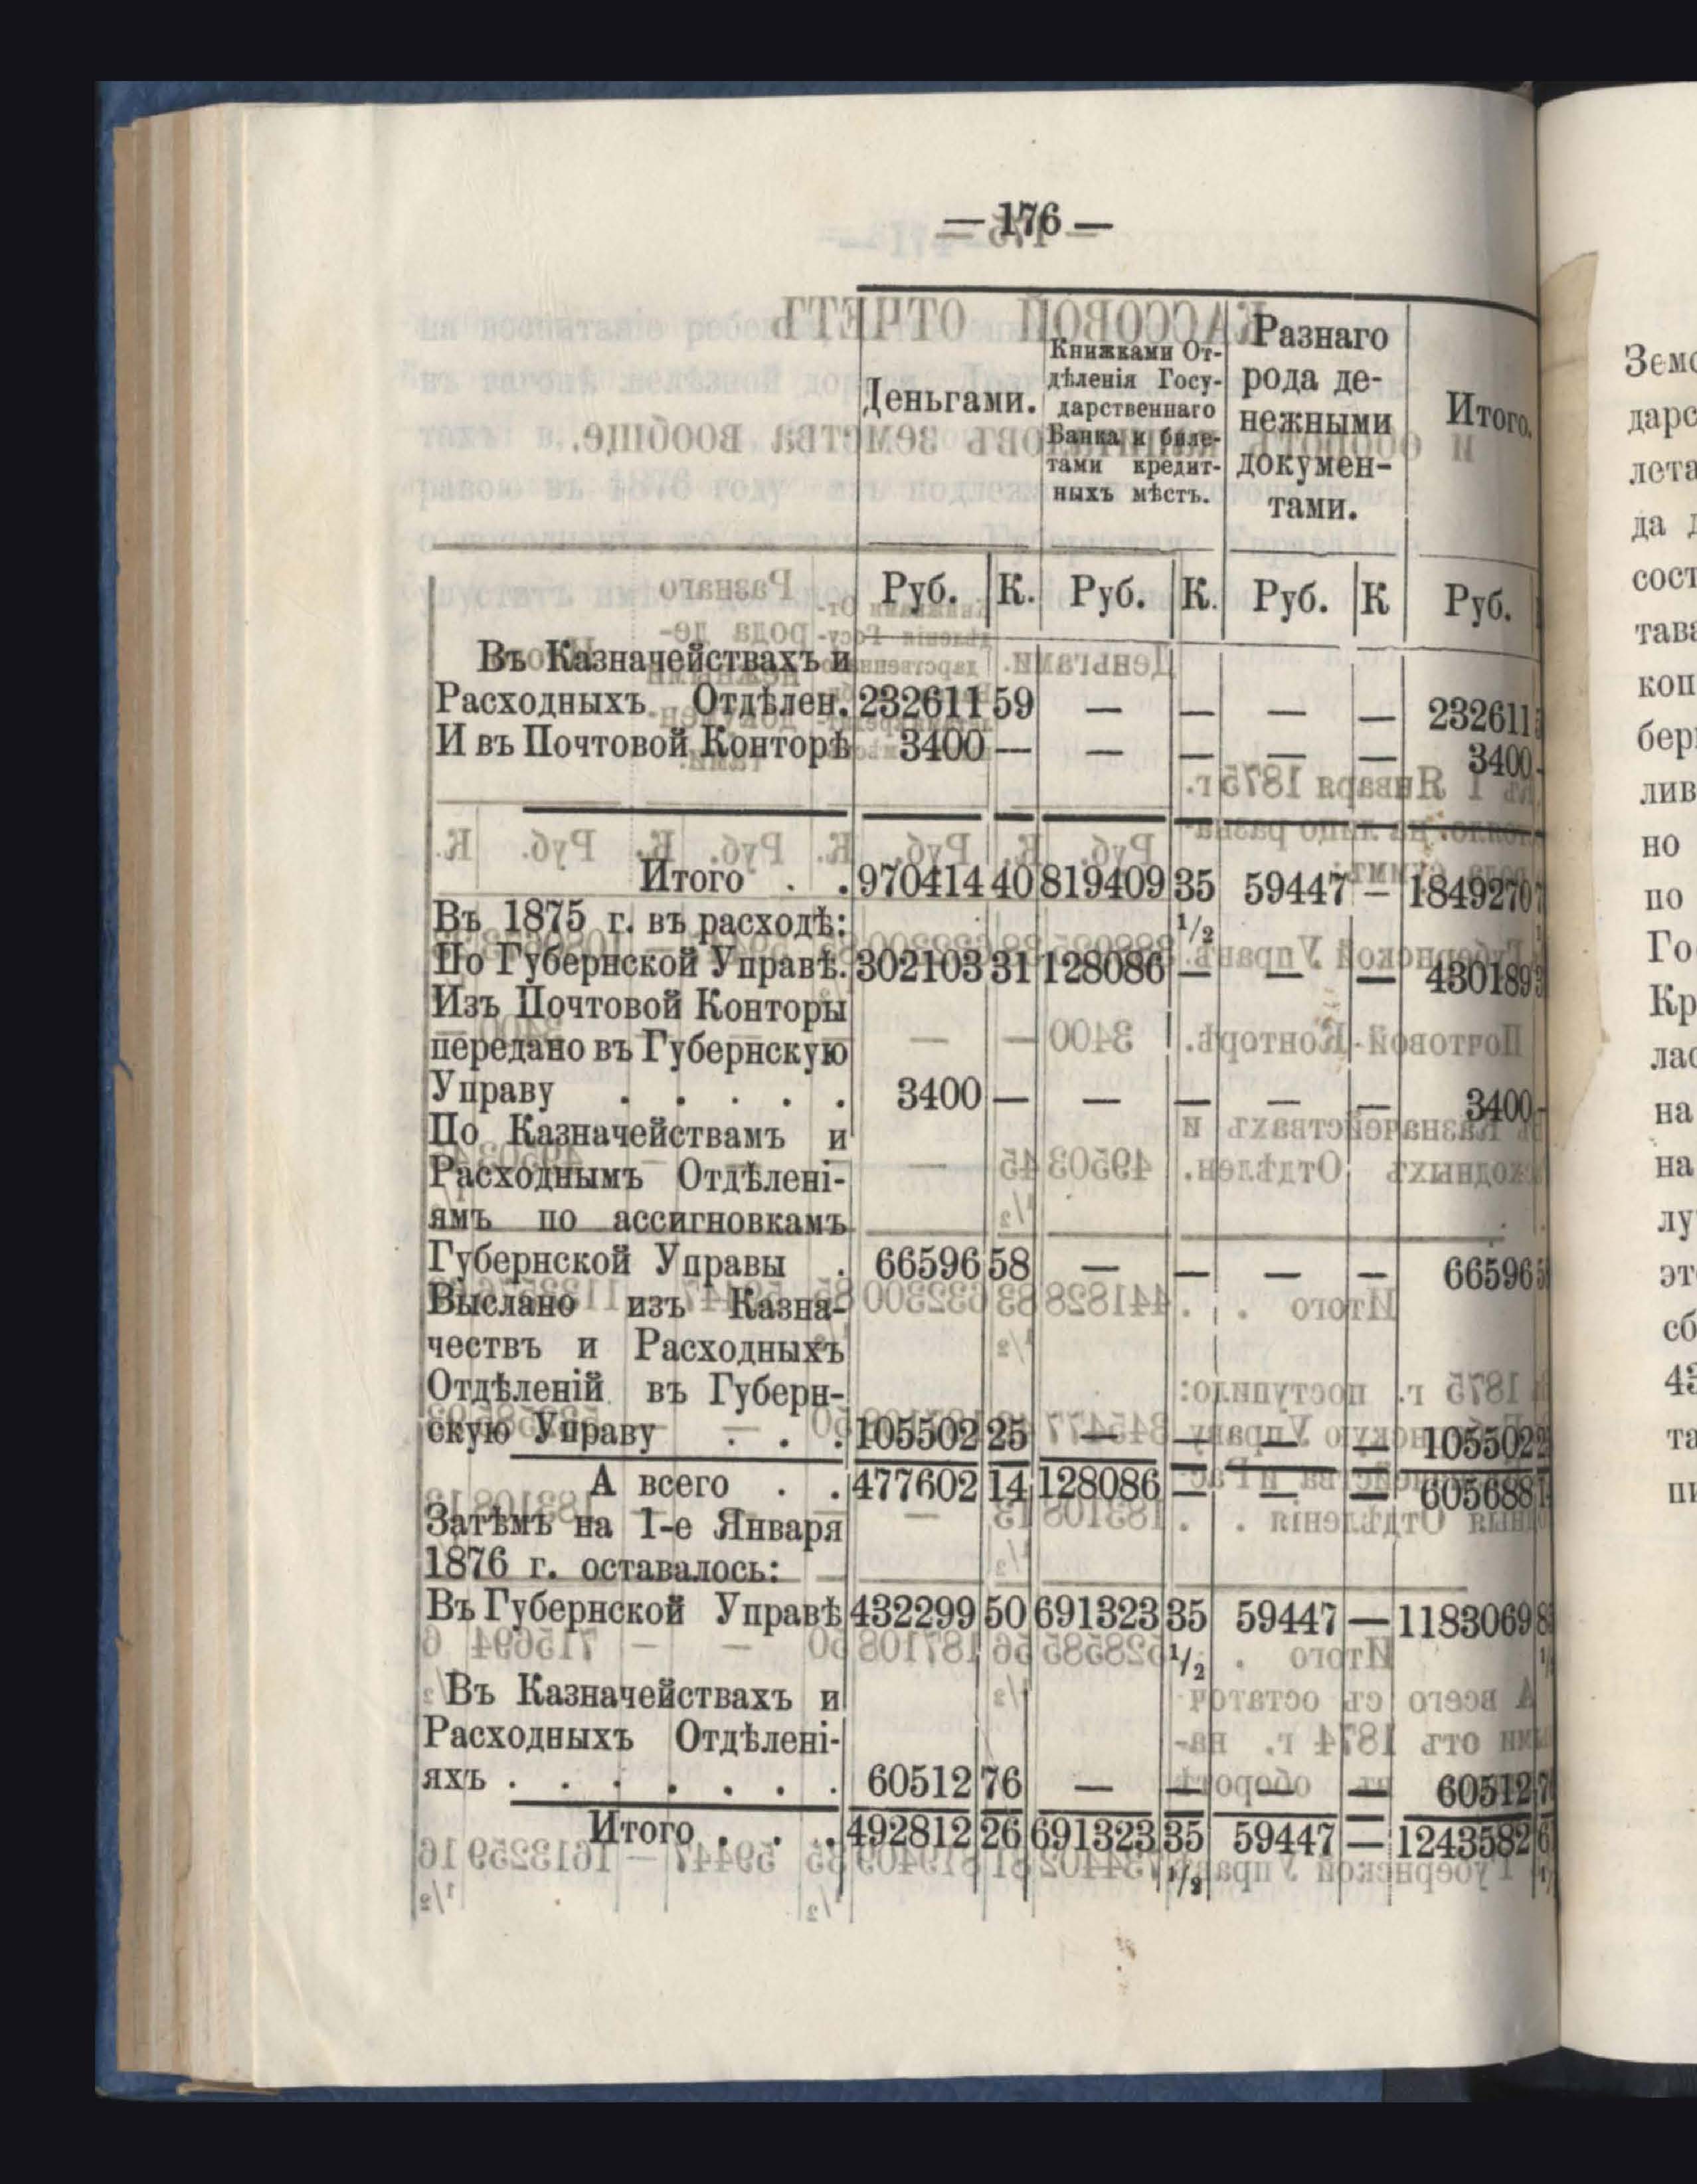 — 176 —
Деньгами.
Книжками От-
дѣленія Госу-
дарственнаго
Банка и биле-
тами кредит-
ныхъ мѣстъ.
Разнаго
рода де-
нежными
докумен-
тами.
Итого.
Руб. К. Руб. К. Руб. К Руб.
Въ Казначействахъ и
Расходныхъ Отдѣлен. 232611 59 — — — — 232611
И въ Почтовой Конторѣ 3400 — — — — — 3400
Итого . . 970414 40 819409 35 59447 — 1849270
Въ 1875 г. въ расходѣ: 1/2
По Губернской Управѣ. 302103 31 128086 — — — 430189
Изъ Почтовой Конторы
передано въ Губернскую
Управу . . . . . 3400 — — — — — 3400
По Казначействамъ и
Расходнымъ Отдѣлені-
ямъ по ассигновкамъ
Губернской Управы . 66596 58 — — — — 66596
Выслано изъ Казна-
чествъ и Расходныхъ
Отдѣленій въ Губерн-
скую Управу . . . 105502 25 — — — — 105502
А всего . . 477602 14 128086 — — — 605688
Затѣмъ на 1-е Января
1876 г. оставалось:
Въ Губернской Управѣ 432299 50 691323 35 59447 — 1183069
1/2
Въ Казначействахъ и
Расходныхъ Отдѣлені-
яхъ . . . . . . . 60512 76 — — — — 60512
Итого . . . 492812 26 691323 35 59447 — 1243582
1/2
дарс
лета
да
сост
тава
коп
бер
лив
но
по
Го
Кр
лас
на
на
лу
эт
сб
та